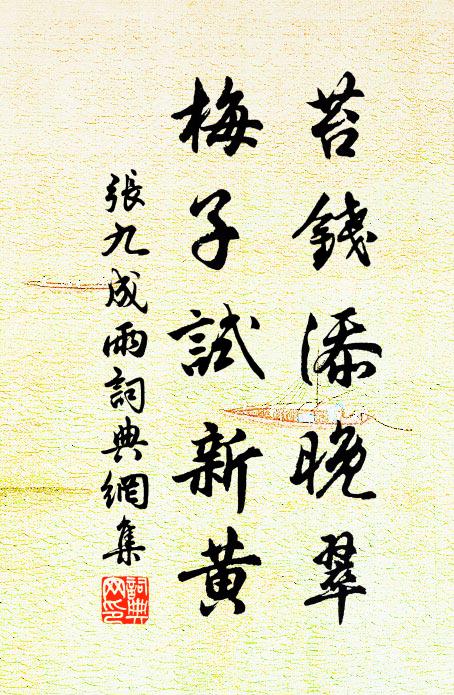 苔錢添晚翠
梅子試新黃
張九成雨詞典網集
詞典網印